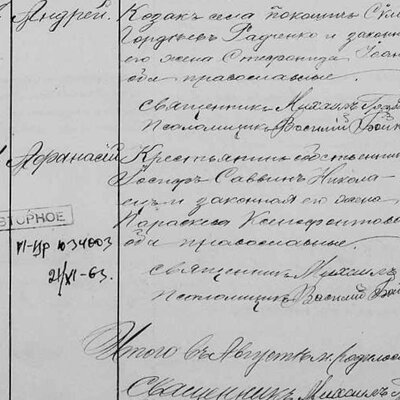 Андрей.
Козак села Покошич Сим
Гордѣев Радченко и законн
его жена Стефанида Іоан
оба православные.
Священник Михаилъ
Псаломщик Василий Бойк
Афанасій
Крестьянин собственник
Госпар Саввин Никола
и законная его жена
Параскева Ксенофонтова
оба православные.
ТОРНОЕ
VI-ЦР ю 34003
21/XI-63.
Священник Михаилъ
Псаломщик Василий Бой
Итого въ Августѣ м. родилос
Священникъ Михаилъ